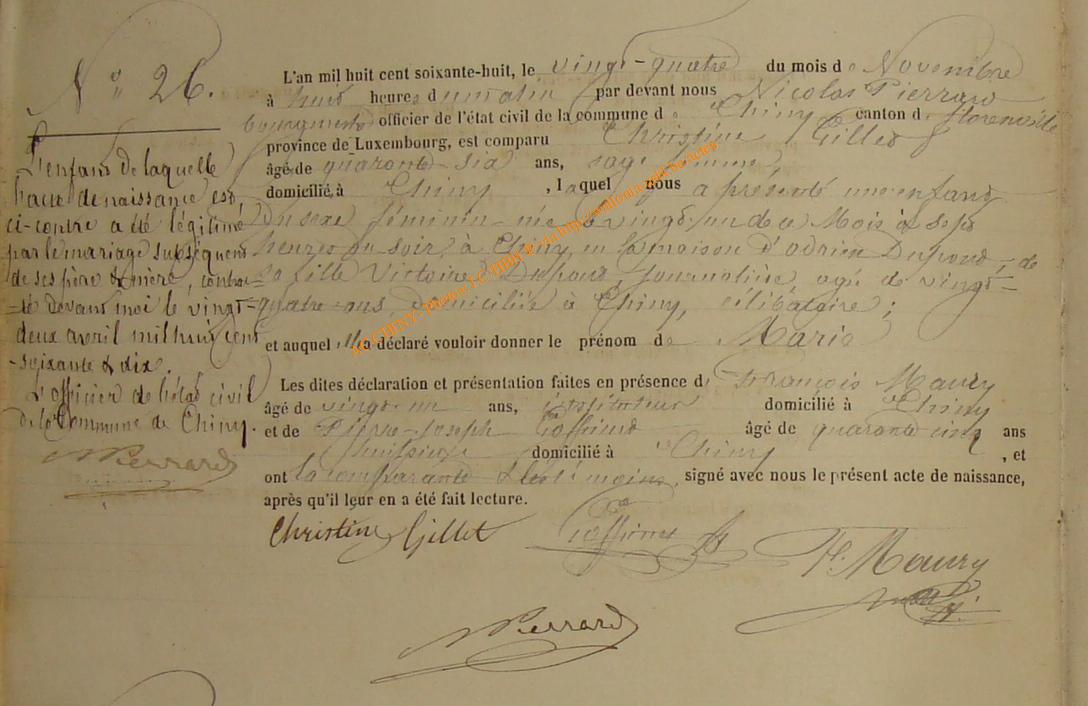 N° 26.
L'an mil huit cent soixante-huit, le vingt-quatre du mois de Novembre
à huit heures du matin par devant nous Nicolas Pierrard
bourgmestre officier de l'état civil de la commune de Chiny canton de florenville
province de Luxembourg, est comparu Christine Gillet
âgée de quarante-six ans, sage femme
domicilié, à Chiny, laquel nous a présenté une enfant
du sexe féminin née le vingt-un de ce Mois à sept
heures du soir, à Chiny, en la maison d'adrien Dupont, de
sa fille Victoire Dupont, journalière, agé de vingt-
quatre ans, domiciliée à Chiny, célibataire;
et auquel elle a déclaré vouloir donner le prénom de Marie
Les dites déclaration et présentation faites en présence de François Maury
âgé de vingt-un ans, instituteur domicilié à Chiny
et de Pierre-Joseph Goffinet âgé de quarante cinq ans
domicilié à Chiny, et
ont la comparante & les témoins, signé avec nous le présent acte de naissance,
après qu'il leur en a été fait lecture.
Christine Gillet Goffinet F. Maury
Pierrard
L'enfant de laquelle
l'acte de naissance est
ci-contre a été légitimé
par le mariage subséquent
de ses père & mère, contrac-
-té devant moi le vingt-
deux avril mil huit cent
-soixante & dix.
L'officier de l'état civil
de la Commune de Chiny.
Pierrard